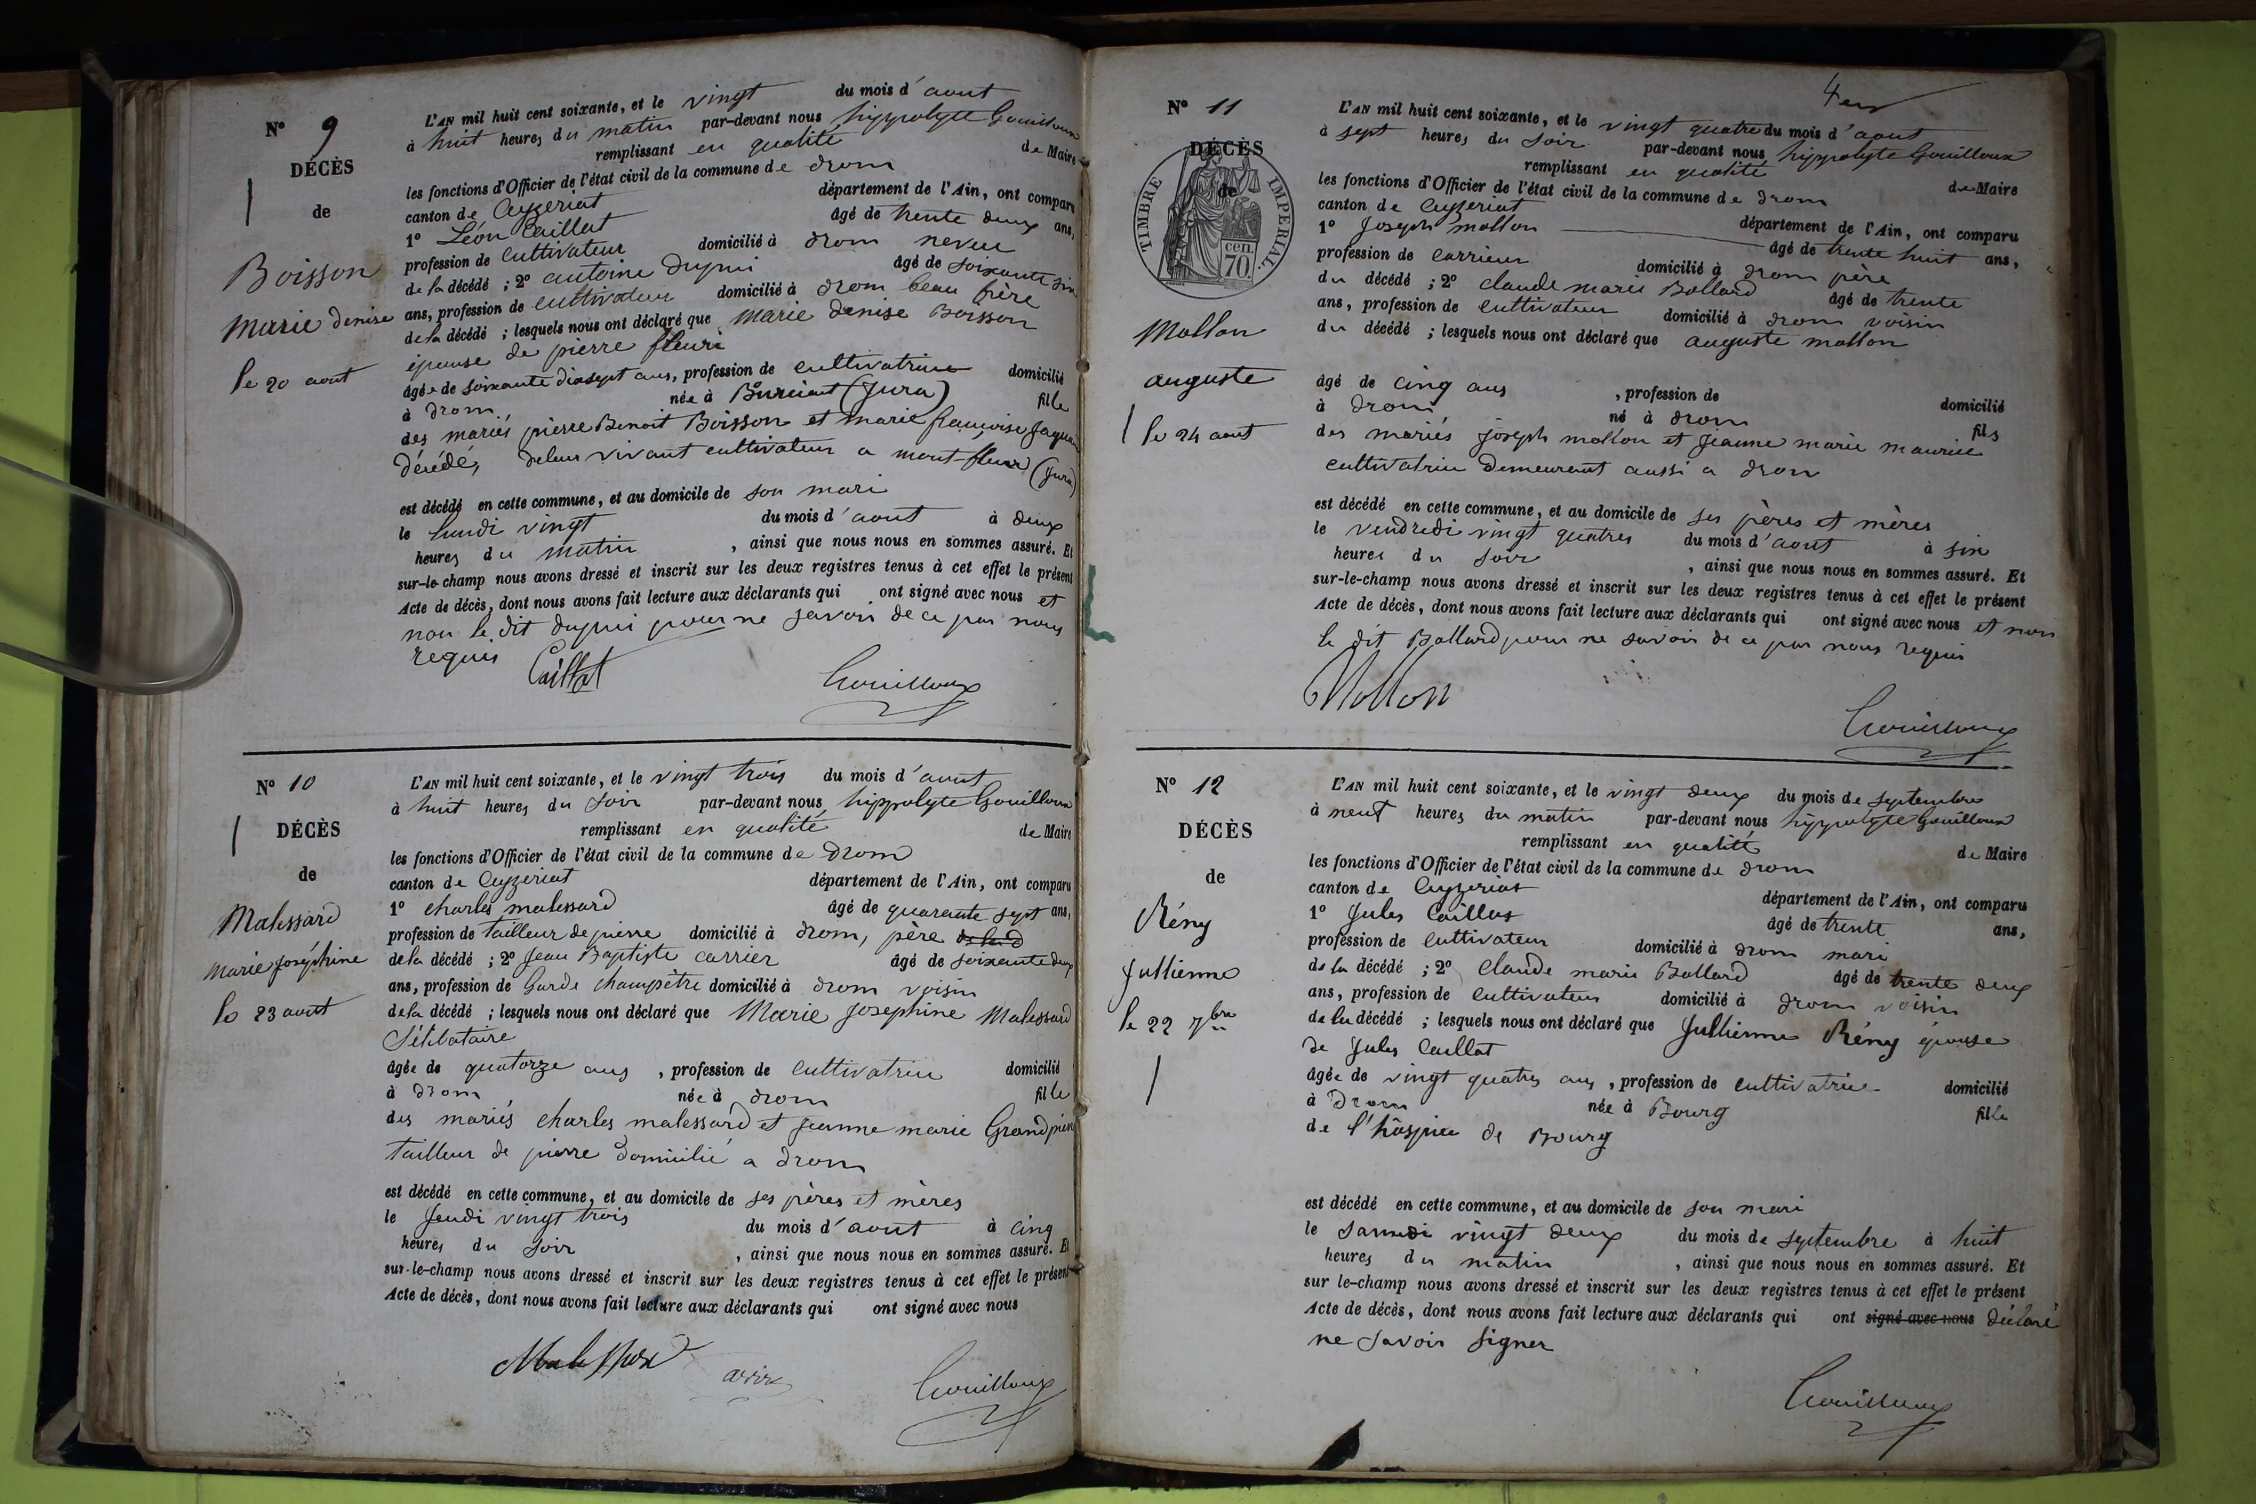 N° 9
DÉCÈS
de
Boisson
Marie denise
le 20 aout
L'AN mil huit cent soixante, et le vingt du mois d'aout
à huit heures du matin par-devant nous hippolyte Gouilloux
remplissant en qualité de Maire
les fonctions d'Officier de l'état civil de la commune de drom
canton de Ceyzeriat département de l'Ain, ont comparu
1° Léon Caillat âgé de trente deux ans,
profession de cultivateur domicilié à drom neveu
de la décédé ; 2° antoine dupui âgé de soixante six
ans, profession de cultivateur domicilié à drom beau frère
de la décédé ; lesquels nous ont déclaré que Marie denise Boisson
épouse de pierre fleuri
âgée de soixante dix sept ans, profession de cultivatrice domicilié
à drom née à Burciat (Jura) fille
des mariés pierre Benoit Boisson et marie françoise
décédé, de leur vivant cultivateur a mont-fleur (Jura)
est décédé en cette commune, et au domicile de son mari
le lundi vingt du mois d'aout à deux
heures du matin , ainsi que nous nous en sommes assuré. Et
sur-le-champ nous avons dressé et inscrit sur les deux registres tenus à cet effet le présent
Acte de décès, dont nous avons fait lecture aux déclarants qui ont signé avec nous et
non le dit dupui pour ne savoir de ce par nous
requis Caillat
Gouilloux
N° 10
DÉCÈS
de
Malessard
Marie Joséphine
le 23 aout
L'AN mil huit cent soixante, et le vingt trois du mois d'aout
à huit heures du soir par-devant nous hippolyte Gouilloux
remplissant en qualité de Maire
les fonctions d'Officier de l'état civil de la commune de drom
canton de Ceyzeriat département de l'Ain, ont comparu
1° charles malessard âgé de quarante sept ans,
profession de tailleur de pierre domicilié à drom, père de la d
de la décédé ; 2° Jean Baptiste carrier âgé de soixante deux
ans, profession de Garde champêtre domicilié à drom voisin
de la décédé ; lesquels nous ont déclaré que Marie Josephine Malessard
Sélibataire
âgée de quatorze ans , profession de cultivatrice domicilié
à drom née à drom fille
des mariés charles malessard et jeanne marie Grandpierre
tailleur de pierre domicilié a drom
est décédé en cette commune, et au domicile de ses pères et mères
le Jeudi vingt trois du mois d'aout à cinq
heures du soir , ainsi que nous nous en sommes assuré. Et
sur-le-champ nous avons dressé et inscrit sur les deux registres tenus à cet effet le présent
Acte de décès, dont nous avons fait lecture aux déclarants qui ont signé avec nous
Malessard
Gouilloux
N° 11
DÉCÈS
de
TIMBRE IMPERIAL
70 cen.
Mollon
auguste
le 24 aout
L'AN mil huit cent soixante, et le vingt quatre du mois d'aout
à sept heures du soir par-devant nous hippolyte Gouilloux
remplissant en qualité de Maire
les fonctions d'Officier de l'état civil de la commune de drom
canton de Ceyzeriat département de l'Ain, ont comparu
1° Joseph mollon âgé de trente huit ans,
profession de carrieur domicilié à drom père
du décédé ; 2° claude marie Bollard âgé de trente
ans, profession de cultivateur domicilié à drom voisin
du décédé ; lesquels nous ont déclaré que auguste mollon
âgé de cinq ans , profession de domicilié
à drom né à drom fils
des mariés joseph mollon et jeanne marie maurice
cultivatrice demeurant aussi a drom
est décédé en cette commune, et au domicile de ses pères et mères
le vendredi vingt quatres du mois d'aout à six
heures du soir , ainsi que nous nous en sommes assuré. Et
sur-le-champ nous avons dressé et inscrit sur les deux registres tenus à cet effet le présent
Acte de décès, dont nous avons fait lecture aux déclarants qui ont signé avec nous et non
le dit Bollard pour ne savoir de ce par nous requis
Mollon
Gouilloux
N° 12
DÉCÈS
de
Rény
Jullienne
le 22 7bre
L'AN mil huit cent soixante, et le vingt deux du mois de septembre
à neuf heures du matin par-devant nous hippolyte Gouilloux
remplissant en qualité de Maire
les fonctions d'Officier de l'état civil de la commune de drom
canton de Ceyzeriat département de l'Ain, ont comparu
1° Jules Caillat âgé de trente ans,
profession de cultivateur domicilié à drom mari
de la décédé ; 2° Claude marie Bollard âgé de trente deux
ans, profession de cultivateur domicilié à drom voisin
de la décédé ; lesquels nous ont déclaré que Jullienne Rény épouse
de Jules Caillat
âgée de vingt quatres ans , profession de cultivatrice domicilié
à Drom née à Bourg fille
de l'hospice de Bourg
est décédé en cette commune, et au domicile de son mari
le Samedi vingt deux du mois de septembre à huit
heures du matin , ainsi que nous nous en sommes assuré. Et
sur le-champ nous avons dressé et inscrit sur les deux registres tenus à cet effet le présent
Acte de décès, dont nous avons fait lecture aux déclarants qui ont signé avec nous déclaré
ne savoir signer
Gouilloux